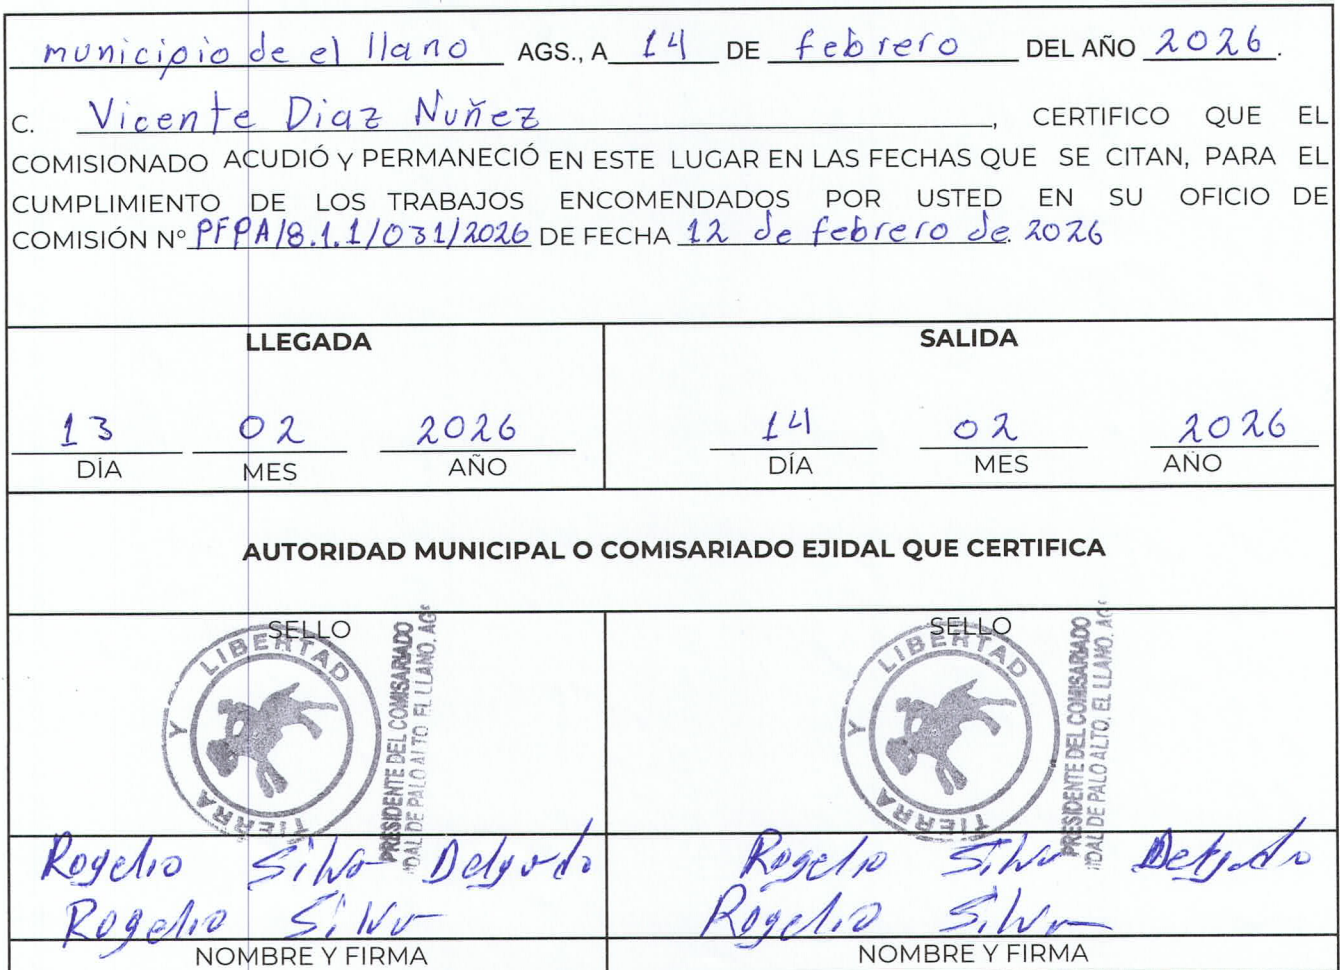 municipio de el llano AGS., A 14 DE febrero DEL AÑO 2026.
C. Vicente Diaz Nuñez, CERTIFICO QUE EL
COMISIONADO ACUDIÓ Y PERMANECIÓ EN ESTE LUGAR EN LAS FECHAS QUE SE CITAN, PARA EL
CUMPLIMIENTO DE LOS TRABAJOS ENCOMENDADOS POR USTED EN SU OFICIO DE
COMISIÓN Nº PFPA/8.1.1/031/2026 DE FECHA 12 de febrero de. 2026
LLEGADA
13 02 2026
DÍA MES AÑO
SALIDA
14 02 2026
DÍA MES AÑO
AUTORIDAD MUNICIPAL O COMISARIADO EJIDAL QUE CERTIFICA
SELLO
TIERRA Y LIBERTAD
PRESIDENTE DEL COMISARIADO
IDAL DE PALO ALTO, EL LLANO, AGS
Rogelio Silva Delgado
Rogelio Silva
NOMBRE Y FIRMA
SELLO
TIERRA Y LIBERTAD
PRESIDENTE DEL COMISARIADO
IDAL DE PALO ALTO, EL LLANO, AGS
Rogelio Silva Delgado
Rogelio Silva
NOMBRE Y FIRMA